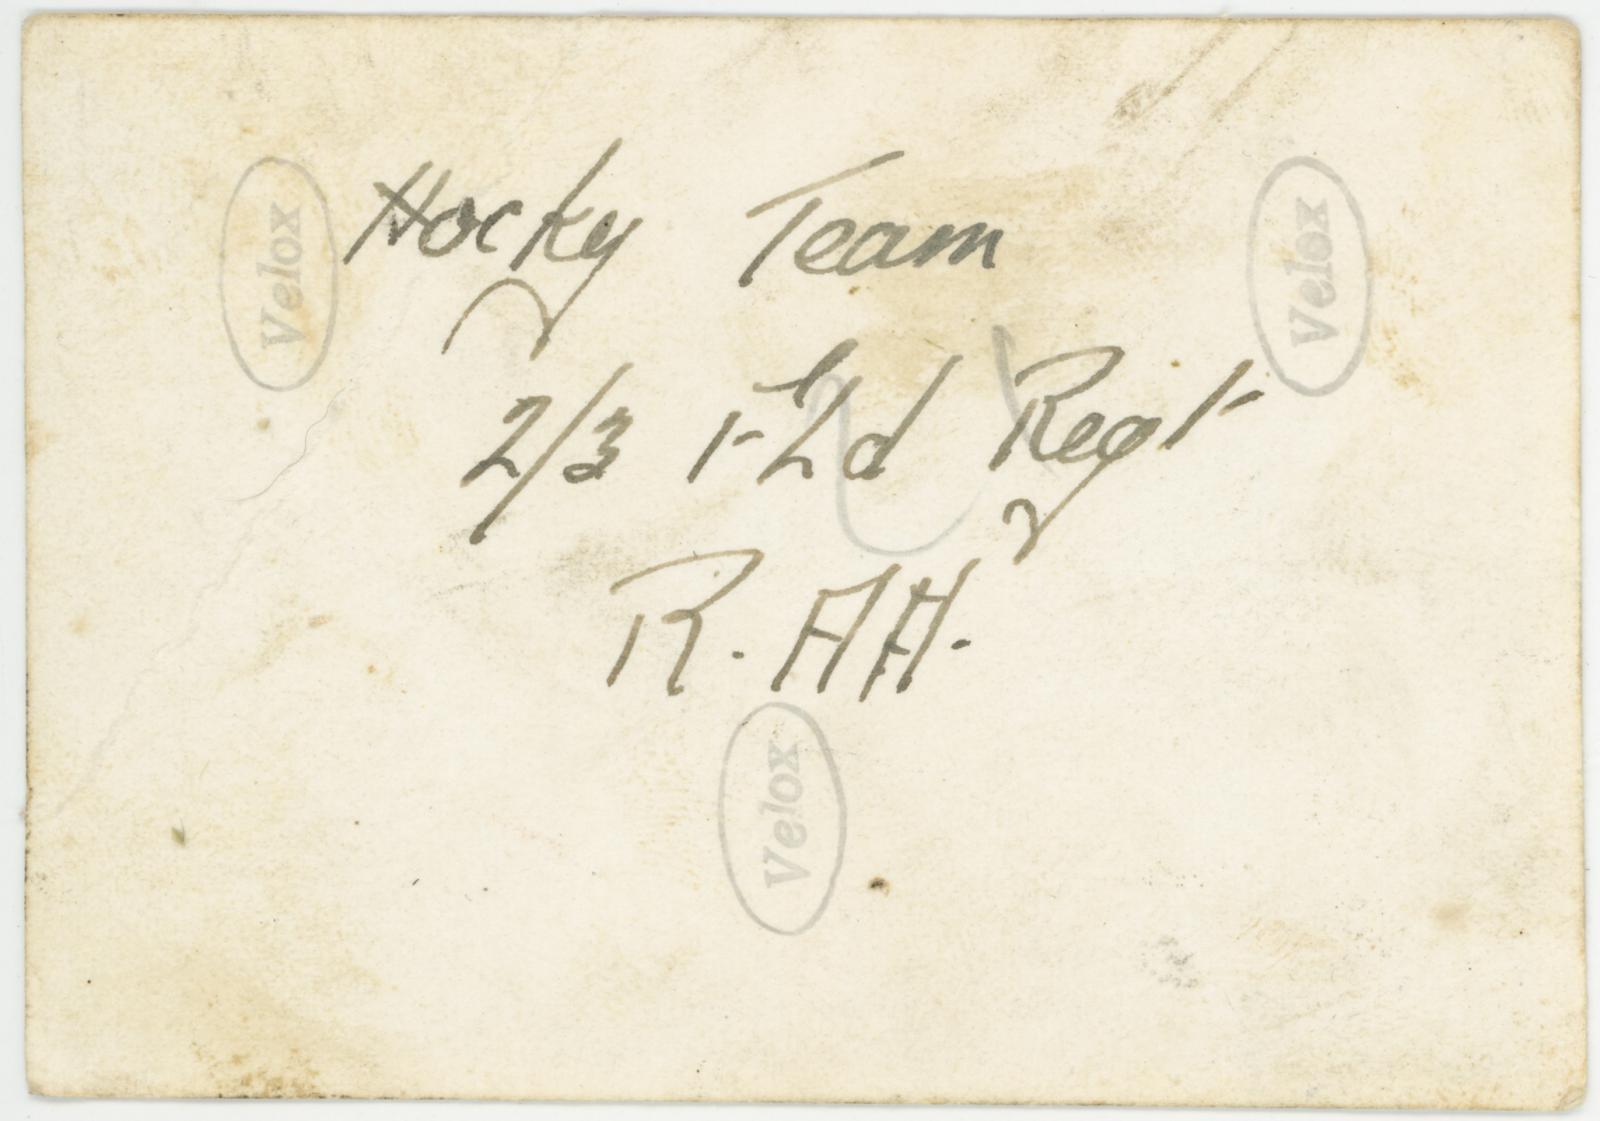 Hocky Team
2/3 Fld Regt
R.AA.
Velox
Velox
Velox